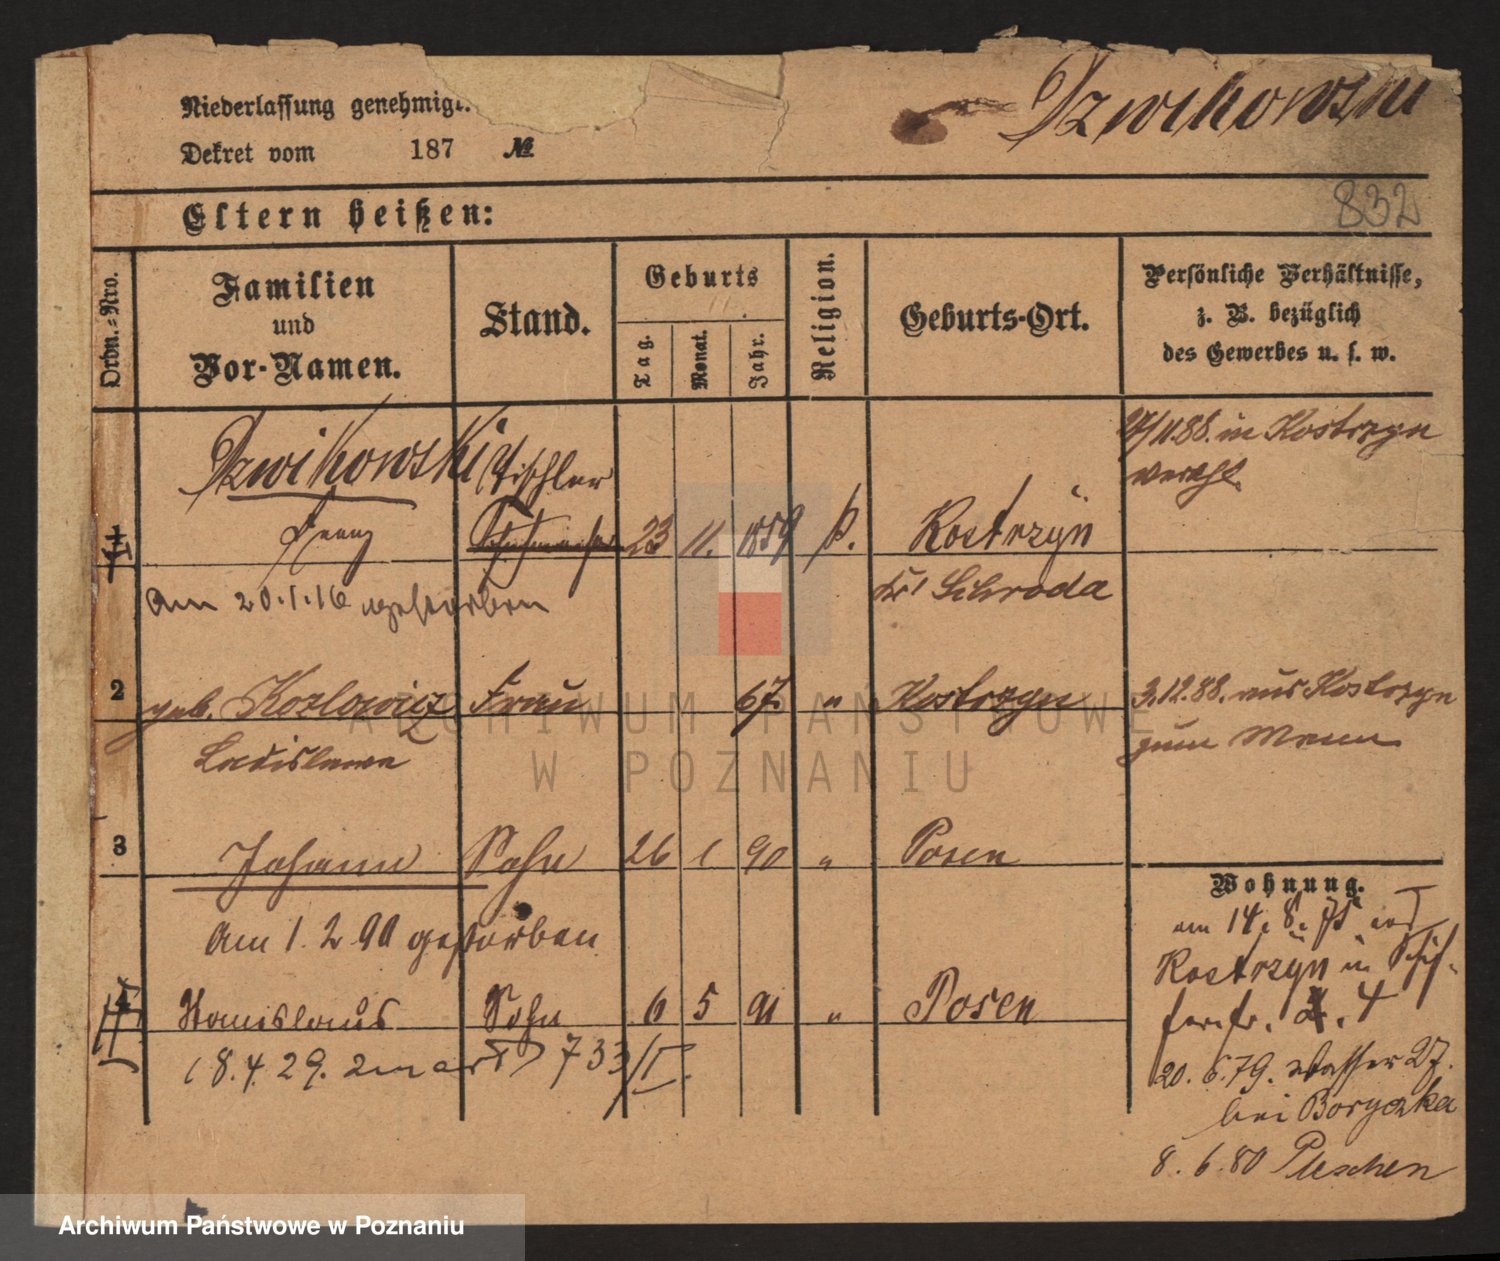 Dzwikowski
Niederlassung genehmigt.
Dekret vom 187 №
832
Eltern heißen:
Ordn.=Nro.
Familien
und
Vor-Namen.
Stand.
Geburts
Tag.
Monat.
Jahr.
Religion.
Geburts-Ort.
Persönliche Verhältnisse,
z. B. bezüglich
des Gewerbes u. s. w.
Dzwikowski Tischler
Franz 23 11. 1859 k. Kostrzyn
Kr. Schroda
am 20.1.16 gestorben
11.88. in Kostrzyn
verehl.
2 geb. Kozlowicz Frau 67. " Kostrzyn
Ladislawa
3.12.88. aus Kostrzyn
zum Mann
3 Johann Sohn 26 1 90 " Posen
am 1.2 90 gestorben
4 Stanislaus Sohn 6 5 91 " Posen
18.4.29. 733/II.
Wohnung.
am 14. 8.
Kostrzyn in Schif-
ferstr. 4
20. 6. 79. Wasser 27.
bei Boryczka
8. 6. 80 Pleschen
ARCHIWUM PAŃSTWOWE
W POZNANIU
Archiwum Państwowe w Poznaniu